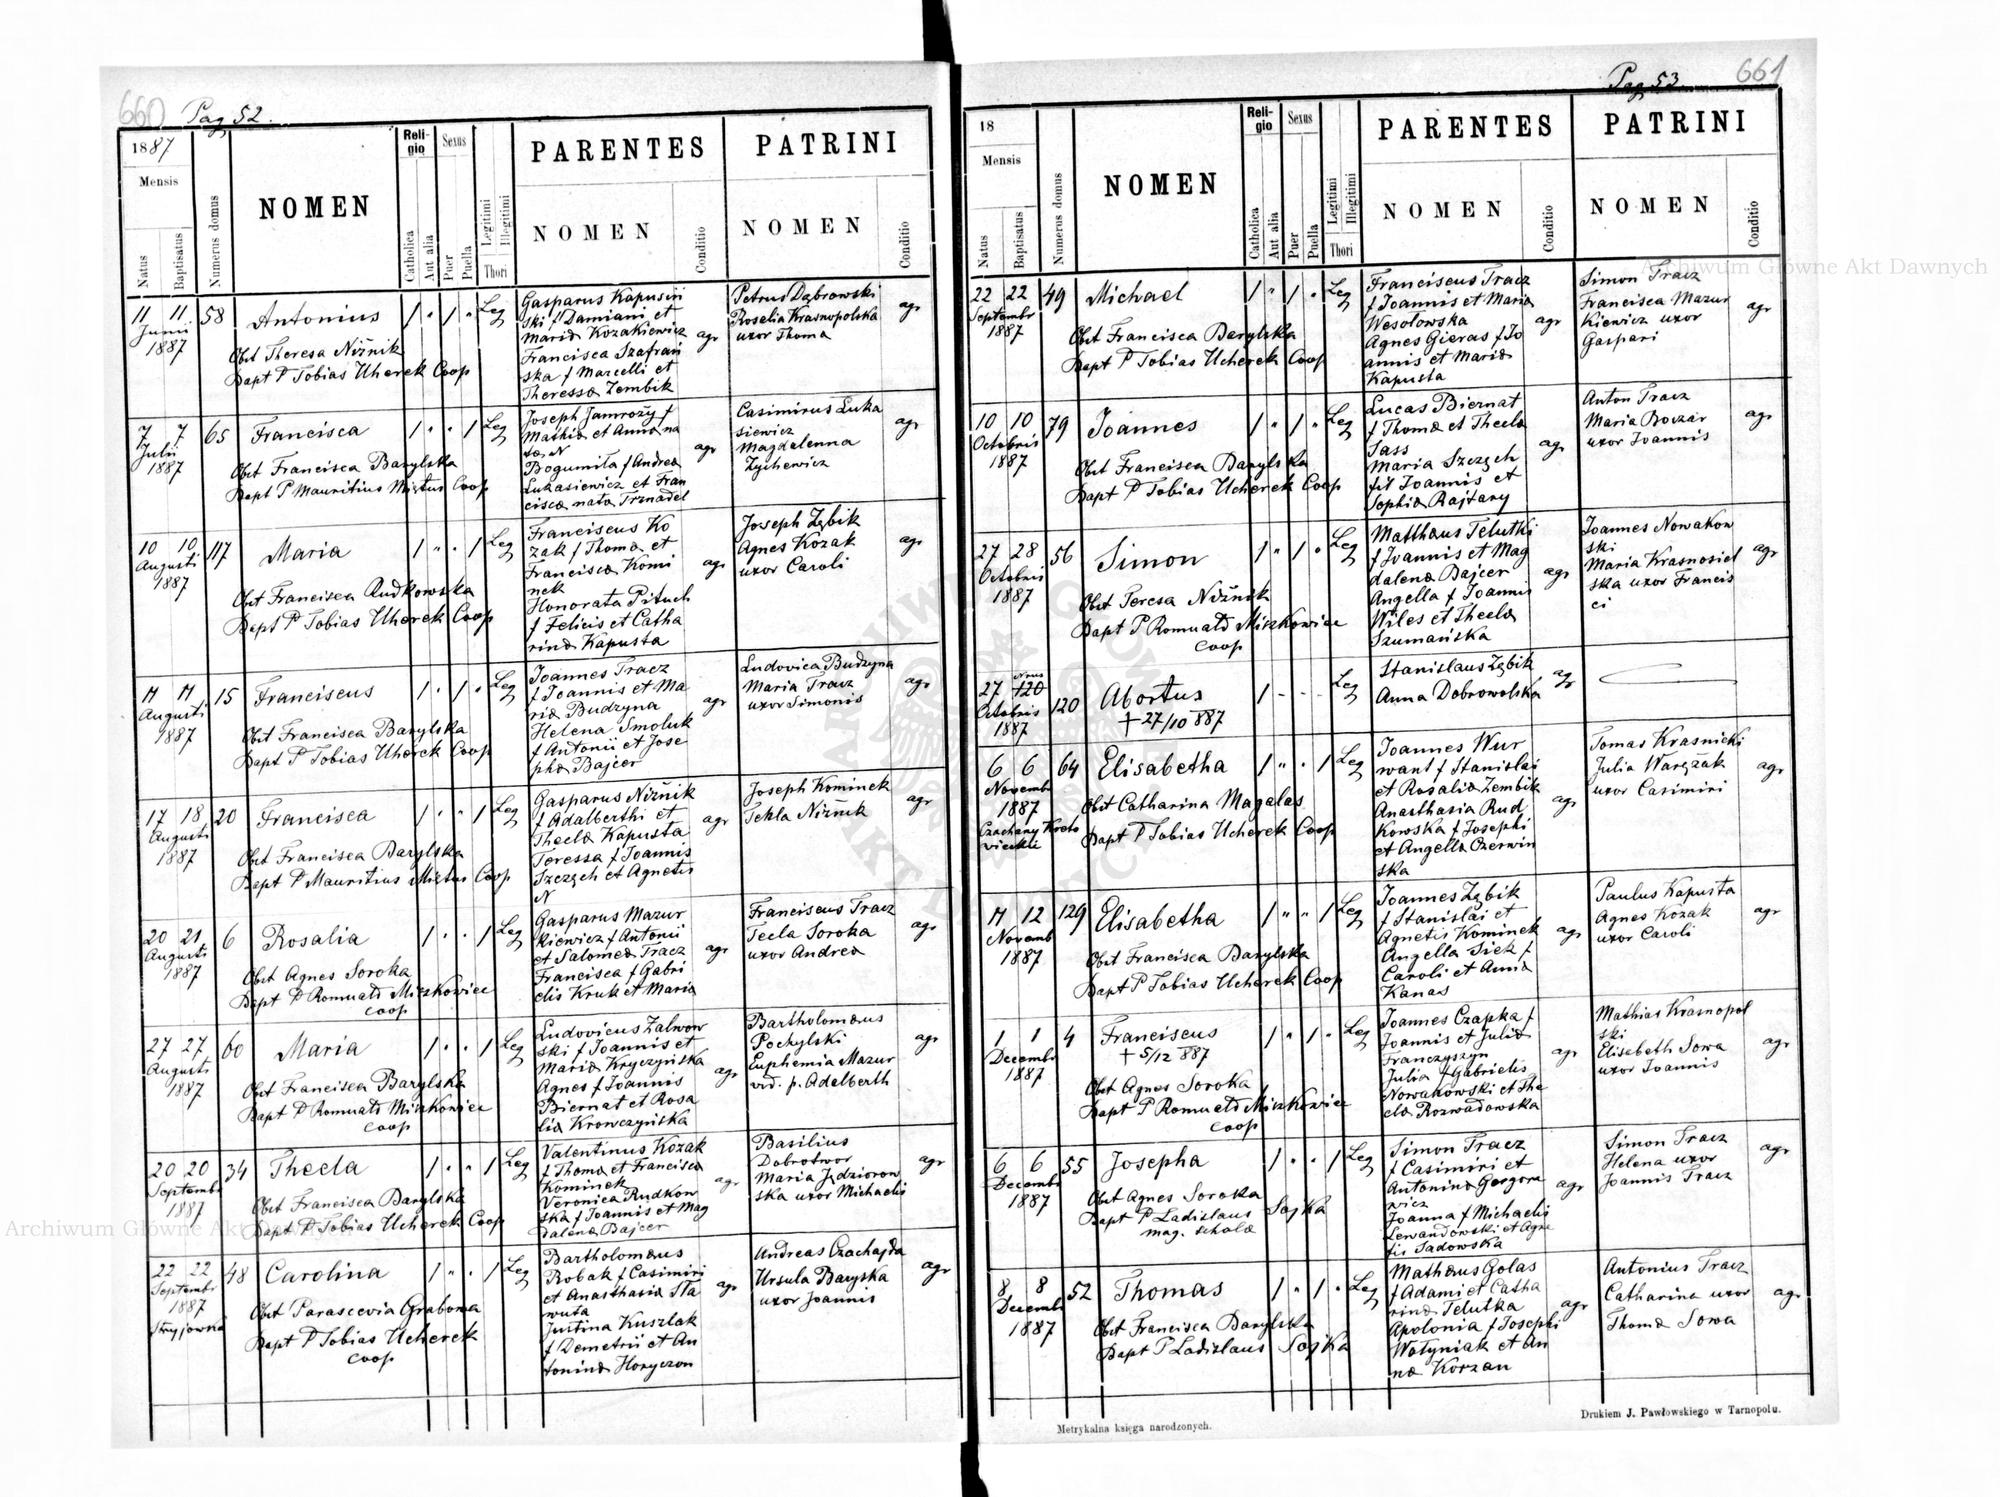 660 Pag 52.
1887
Mensis
Natus
Baptisatus
Numerus domus
NOMEN
Religio
Catholica
Aut alia
Sexus
Puer
Puella
Legitimi
Illegitimi
Thori
PARENTES
NOMEN
Conditio
PATRINI
NOMEN
Conditio
11 11 58 Antonius 1 " 1 " Leg
Junii
1887
Obst Theresa Niżnik
Bapt P Tobias Uherek Coop
Gasparus Kapusiń
ski f Damiani et
Maria Kozakiewicz
Francisca Szafrań
ska f Marcelli et
Theressa Zembik
agr
Petrus Dąbrowski
Rosalia Krasnopolska
uxor Thoma
agr
7 7 65 Francisca 1 " " 1 Leg
Julii
1887
Obst Francisca Barylska
Bapt P Mauritius Miętus Coop
Joseph Jamroży f
Mathia et Anna na
ta N
Bogumiła f Andrea
Lukasiewicz et Fran
cisca nata Trznadel
agr
Casimirus Luka
siewicz
Magdalenna
Zychewicz
agr
10 10 117 Maria 1 " " 1 Leg
Augusti
1887
Obst Francisca Rudkowska
Bapt P Tobias Uherek Coop
Franciscus Ko
zak f Thoma et
Francisca Komi
nek
Honorata Pituch
f Felicis et Catha
rina Kapusta
agr
Joseph Zębik
Agnes Kozak
uxor Caroli
agr
11 11 15 Franciscus 1 " 1 " Leg
Augusti
1887
Obst Francisca Barylska
Bapt P Tobias Uherek Coop
Joannes Tracz
f Joannis et Ma
ria Budzyna
Helena Smoluk
f Antonii et Jose
pha Bajcer
agr
Ludovica Budzyna
Maria Tracz
uxor Simonis
agr
17 18 20 Francisca 1 " " 1 Leg
Augusti
1887
Obst Francisca Barylska
Bapt P Mauritius Miętus Coop
Gasparus Niżnik
f Adalberthi et
Thecla Kapusta
Teressa f Joannis
Szczęch et Agnetis
N
agr
Joseph Kominek
Tekla Niżnik
agr
20 21 6 Rosalia 1 " " 1 Leg
Augusti
1887
Obst Agnes Soroka
Bapt P Romuald Miszkowicz
coop
Gasparus Mazur
kiewicz f Antonii
et Salomea Tracz
Francisca f Gabri
elis Kruk et Maria
agr
Franciscus Tracz
Tecla Soroka
uxor Andrea
agr
27 27 60 Maria 1 " " 1 Leg
Augusti
1887
Obst Francisca Barylska
Bapt P Romuald Miszkowicz
coop
Ludovicus Zalwow
ski f Joannis et
Maria Kryczyńska
Agnes f Joannis
Biernat et Rosa
lia Krowczyńska
agr
Bartholomæus
Pochylski
Euphemia Mazur
vid. p. Adalberth
agr
20 20 34 Thecla 1 " " 1 Leg
Septembr
1887
Obst Francisca Barylska
Bapt P Tobias Ucherek Coop
Valentinus Kozak
f Thoma et Francisca
Kominek
Veronica Rudkow
ska f Joannis et Mag
dalena Bajcer
agr
Basilius
Dobrotwor
Maria Jędziorow
ska uxor Michaelis
agr
22 22 48 Carolina 1 " " 1 Leg
Septembr
1887
Stryjowka
Obst Parascevia Grabowa
Bapt P Tobias Ucherek
coop
Bartholomæus
Robak f Casimiri
et Anasthasia Sła
wuta
Justina Kuszlak
f Demetrii et An
tonina Horyczon
agr
Andreas Czachajda
Ursula Baryska
uxor Joannis
agr
Pag 53 661
18
Mensis
Natus
Baptisatus
Numerus domus
NOMEN
Religio
Catholica
Aut alia
Sexus
Puer
Puella
Legitimi
Illegitimi
Thori
PARENTES
NOMEN
Conditio
PATRINI
NOMEN
Conditio
22 22 49 Michael 1 " 1 " Leg
Septembr
1887
Obst Francisca Barylska
Bapt P Tobias Ucherek Coop
Franciscus Tracz
f Joannis et Maria
Wesołowska
Agnes Gieras f Jo
annis et Maria
Kapusta
agr
Simon Tracz
Francisca Mazur
kiewicz uxor
Gaspari
agr
10 10 79 Joannes 1 " 1 " Leg
Octobris
1887
Obst Francisca Barylska
Bapt P Tobias Ucherek Coop
Lucas Biernat
f Thoma et Thecla
Sass
Maria Szczęch
fil Joannis et
Sophia Rajtary
agr
Anton Tracz
Maria Boczar
uxor Joannis
agr
27 28 56 Simon 1 " 1 " Leg
Octobris
1887
Obst Teresa Niżnik
Bapt P Romuald Miszkowicz
coop
Matthaus Telutki
f Joannis et Mag
dalena Bajcer
Angella f Joannis
Wiles et Thecla
Szumańska
agr
Joannes Nowakow
ski
Maria Krasnosiel
ska uxor Francis
ci
agr
27 120 120 Abortus 1 - - - Leg
Octobris
1887
+ 27/10 887
Stanislaus Zębik
Anna Dobrowolska
agr
6 6 64 Elisabetha 1 " " 1 Leg
Novembr
1887
Obst Catharina Magalas
Bapt P Tobias Ucherek Coop
Joannes Wur
want f Stanislai
et Rosalia Zembik
Anasthasia Rud
kowska f Josephi
et Angella Czerwin
ska
agr
Tomas Krasnicki
Julia Waręzak
uxor Casimiri
agr
11 12 129 Elisabetha 1 " " 1 Leg
Novemb
1887
Obst Francisca Barylska
Bapt P Tobias Ucherek Coop
Joannes Zębik
f Stanislai et
Agnetis Kominek
Angella Siek f
Caroli et Anna
Kanas
agr
Paulus Kapusta
Agnes Kozak
uxor Caroli
agr
1 1 4 Franciscus 1 " 1 " Leg
Decembr
1887
+ 5/12 887
Obst Agnes Soroka
Bapt P Romuald Miszkowicz
coop
Joannes Czapka f
Joannis et Julia
Franczyszyn
Julia f Gabrielis
Nowakowski et The
cla Rozwadowska
agr
Mathias Krasnopol
ski
Elisabeth Sowa
uxor Joannis
agr
6 6 55 Josepha 1 " " 1 Leg
Decembr
1887
Obst Agnes Soroka
Bapt P Ladislaus Sojka
mag. schola
Simon Tracz
f Casimiri et
Antonina Gergoro
wicz
Joanna f Michaelis
Lewandowski et Agne
tis Sadowska
agr
Simon Tracz
Helena uxor
Joannis Tracz
agr
8 8 52 Thomas 1 " 1 " Leg
Decemb
1887
Obst Francisca Barylska
Bapt P Ladislaus Sojka
Mathæus Golas
f Adami et Catha
rina Telutka
Apolonia f Josephi
Wołyniak et An
na Korzan
agr
Antonius Tracz
Catharina uxor
Thoma Sowa
agr
Metrykalna księga narodzonych.
Drukiem J. Pawłowskiego w Tarnopolu.
Archiwum Główne Akt Dawnych
Archiwum Główne Akt Dawnych